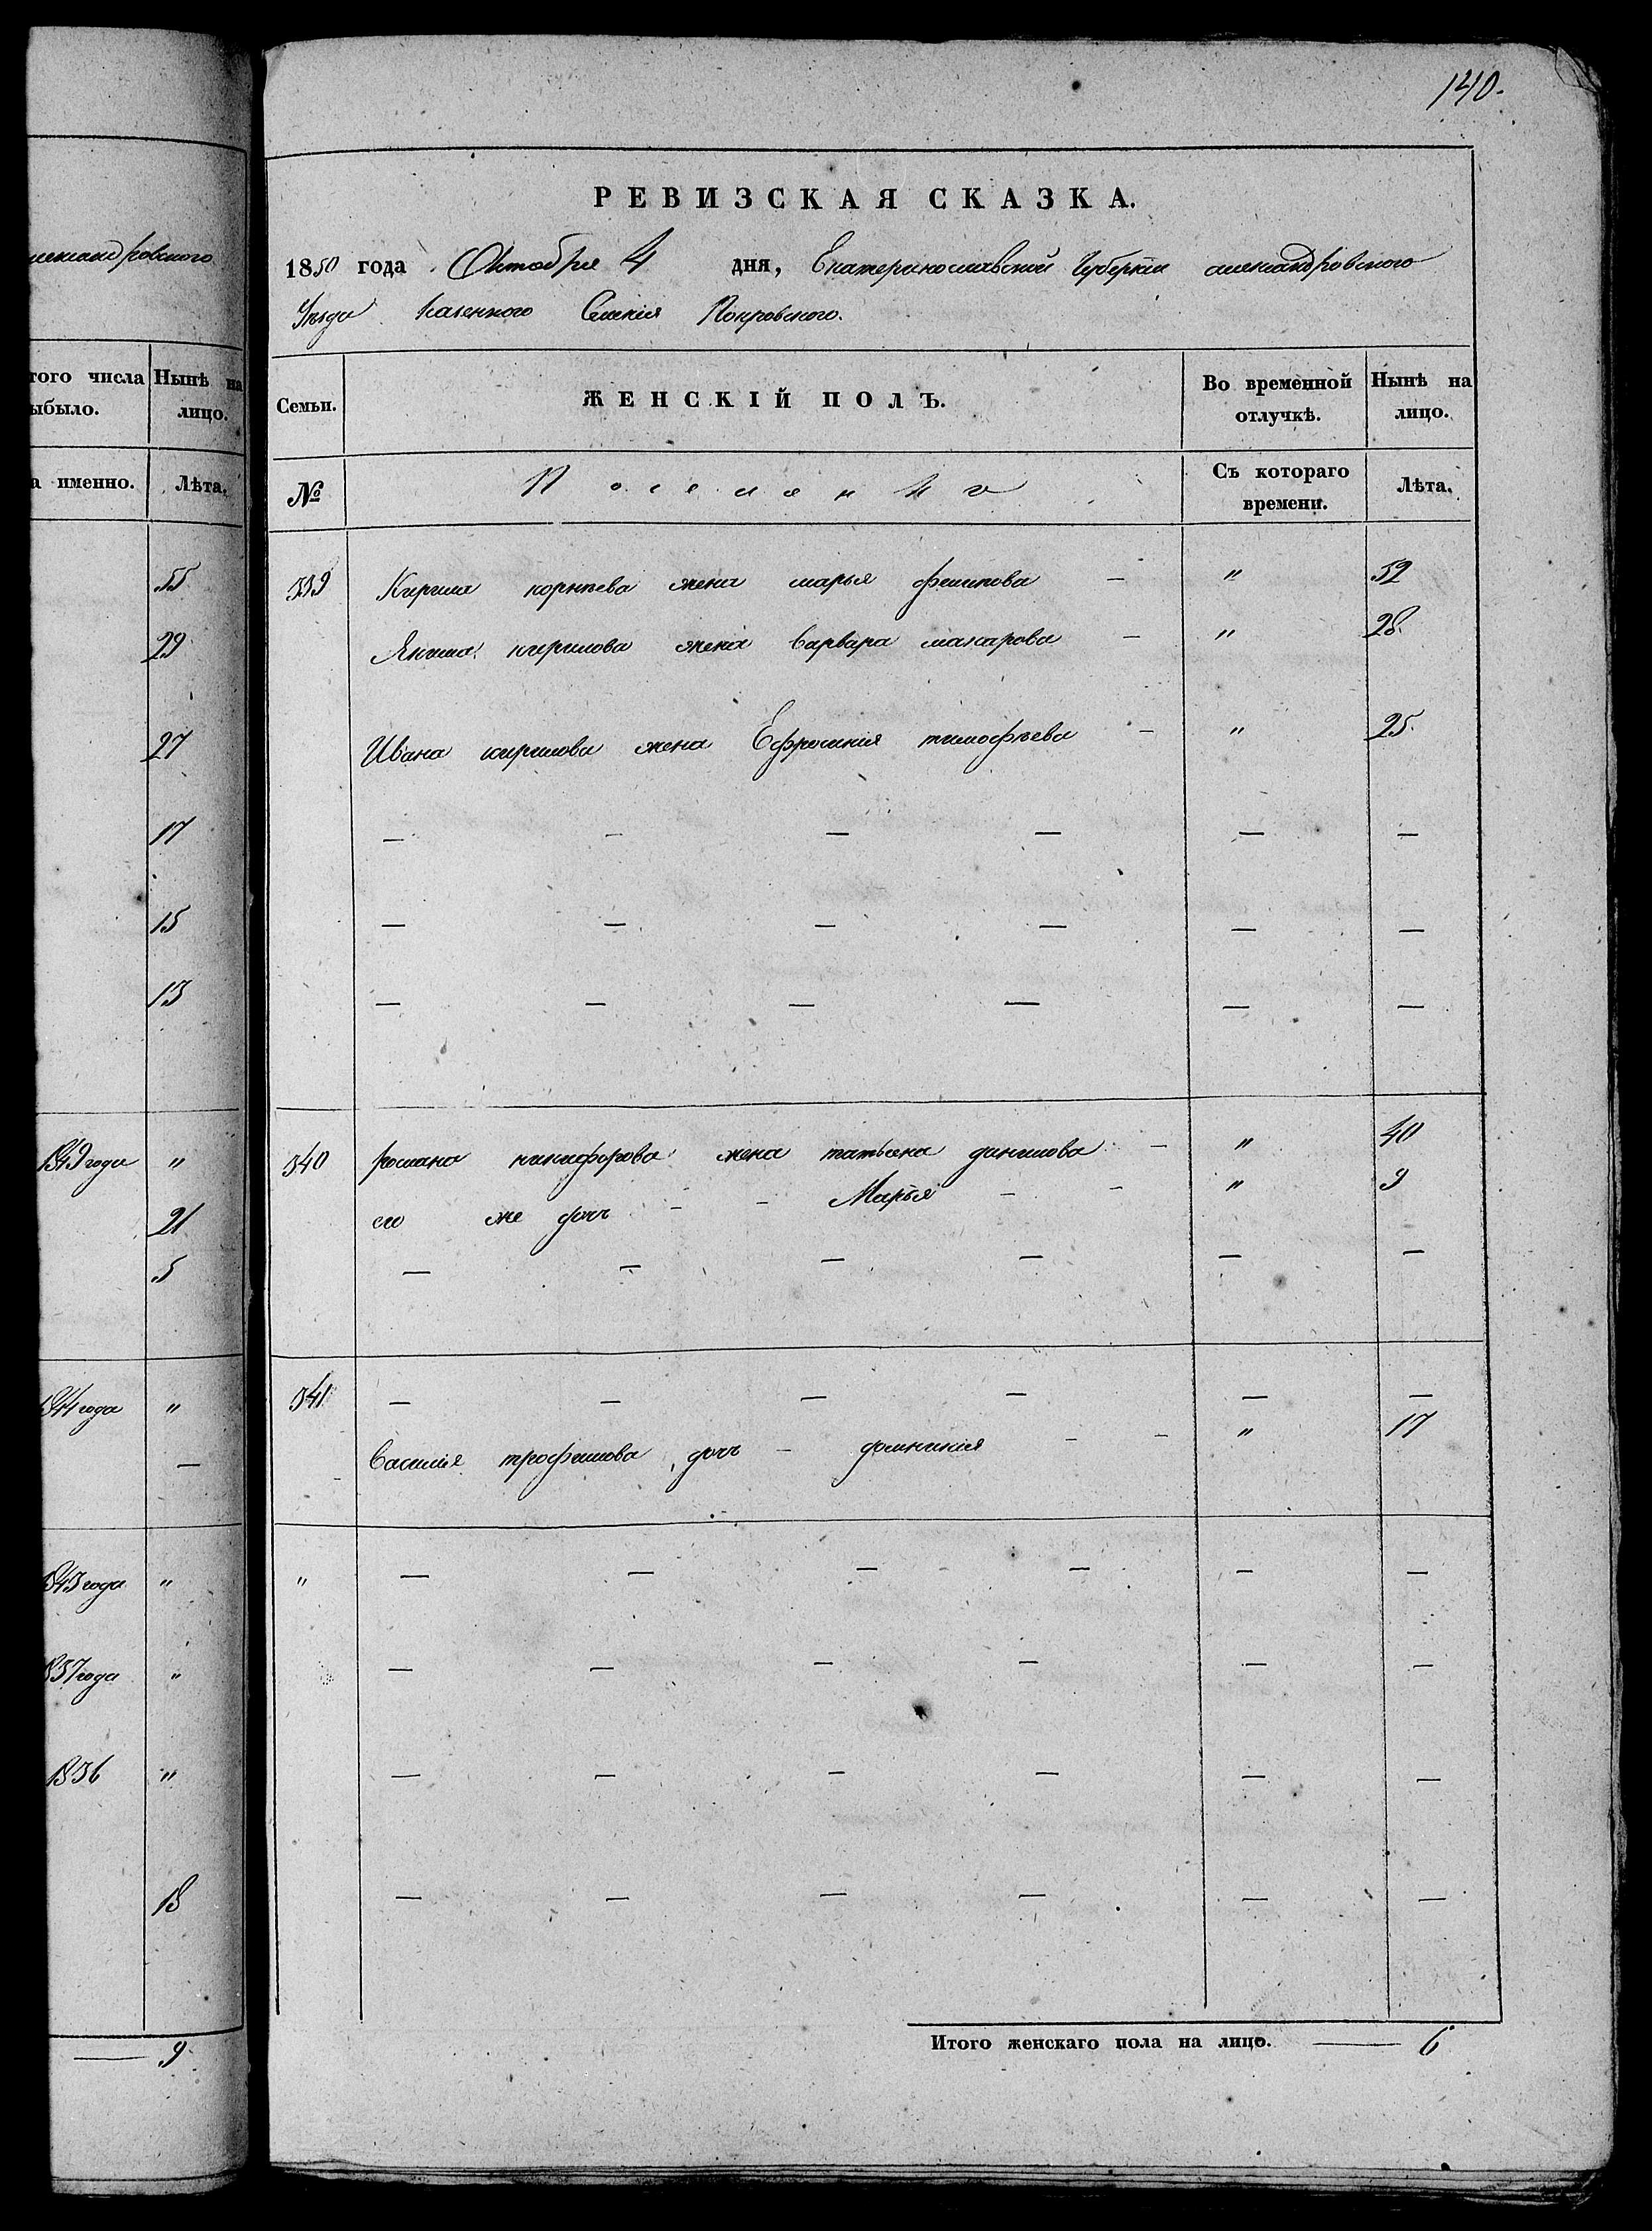 лександровского
того числа Нынѣ на
ыбыло. лицо.
а именно. Лѣта.
55
29
27
17
15
13
1849 года "
21
5
1844 года "
—
1843 года "
1837 года "
1836 "
18
— 9
140.
РЕВИЗСКАЯ СКАЗКА.
1850 года Октября 4 дня, Екатеринославской Губернии александровского
Уѣзда Казенного Селенія Покровского.
Семьи. ЖЕНСКІЙ ПОЛЪ. Во временной отлучкѣ. Нынѣ на лицо.
№ Съ котораго времени. Лѣта.
339 Кирила корнѣева жена марья филипова — " 52
Якима кирилова жена варвара макарова — " 28.
Ивана кирилова жена Ефросинія тимофѣева — " 25.
— — — — — —
— — — — — —
— — — — — —
340 романа никифорова жена татьяна данилова — " 40
его же дочь - - Марья - - " 9
— — — — — —
341 — — — — — —
василія трофимова дочь — домникія - - " 17
" — — — — — —
— — — — — —
— — — — — —
— — — — — —
Итого женскаго пола на лицо. — 6